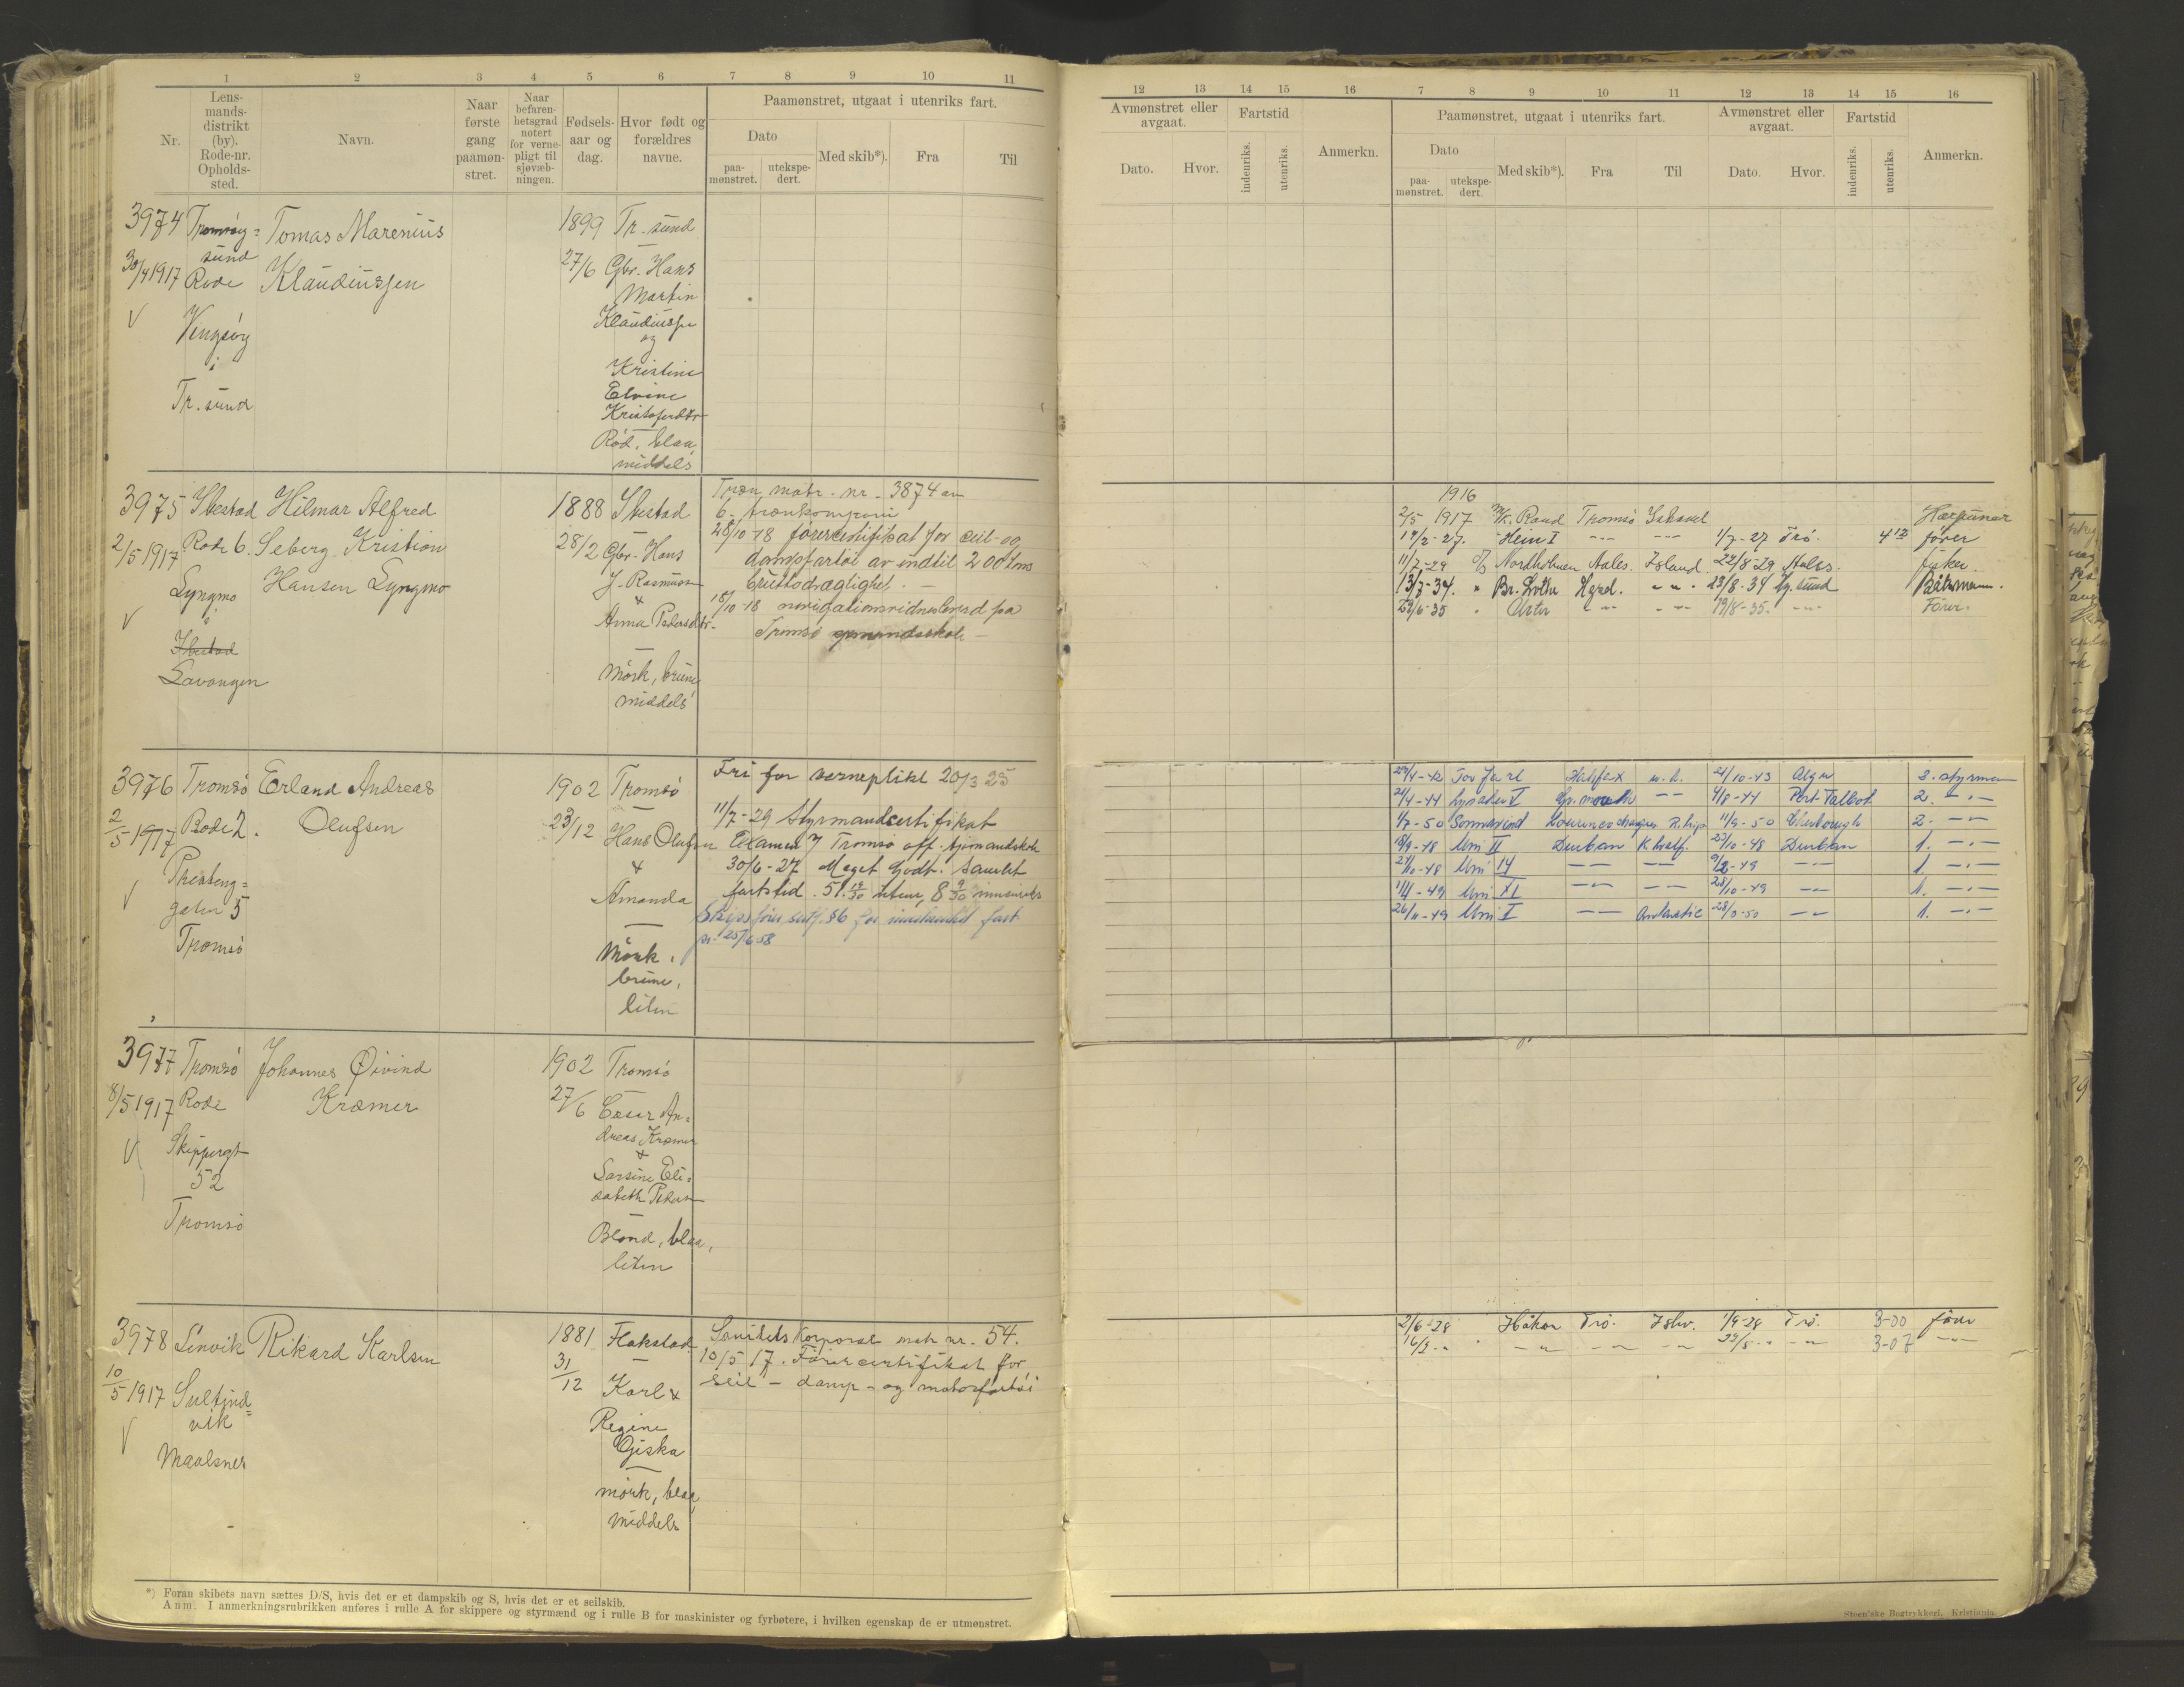 1 2 3 4 5 6 7 8 9 10 11
Nr.
Lens-
mands-
distrikt
(by).
Rode-nr.
Opholds-
sted.
Navn.
Naar
første
gang
paamøn-
stret.
Naar
befaren-
hetsgrad
notert
for verne-
pligt til
sjøvæb-
ningen.
Fødsels-
aar og
dag.
Hvor født og
forældres
navne.
Paamønstret, utgaat i utenriks fart.
Dato
paa-
mønstret.
utekspe-
dert.
Med skib*).
Fra
Til
3974 Tromsøy=
sund
30/4 1917 Rode
Vengsøy
i
Tr. sund
Tomas Marenius
Klaudiussen
1899
27/6
Tr. sund
Gbr. Hans
Martin
Klaudiussen
og
Kristine
Elvine
Kristoferdtr
Rød, blaa,
middels
3975 Ibestad
2/5 1917 Rode 6.
Lyngmo
i
Ibestad
Lavangen
Hilmar Alfred
Seberg Kristian
Hansen Lyngmo
1888
28/2
Ibestad
Gbr. Hans
J. Rasmussen
&
Anna Pedersdtr.
Mörk, brune,
middels
Træn matr. nr. 3874 av
6. trænkompani
28/10-18 förercertifikat for seil- og
dampfartöi av indtil 200 tons
bruttodrægtighet. —
18/10-18 navigationsvidnesbyrd fra
Tromsö sjömandsskole —
3976 Tromsö
2/5 1917 Rode 2.
gaten 5
Tromsö
Erland Andreas
Olufsen
1902
23/12
Tromsö
Hans Olufsen
&
Amanda
Mörk,
brune,
liten
Fri for verneplikt 20/3 25
11/7-29 Styrmandscertifikat
Examen I Tromsö off. sjömandskole
30/6-27 Meget Godt. Samlet
fartstid 51 19/30 utenr, 8 9/30 innenriks
Skipsförer sertf. §6 for innskrenket fart
nr. 25/6 58
3977 Tromsö
8/5 1917 Rode
Skippergt
52
Tromsö
Johannes Øivind
Kræmer
1902
27/6
Tromsö
Cæsar An=
dreas Kræmer
&
Sarsine Eli=
sabeth Peders
Blond, blaa,
liten
3978 Lenvik
10/5 1917 Sultind=
vik
Maalsnes
Rikard Karlsen
1881
31/12
Flakstad
Karl &
Regine
Giska
mörk, blaa,
middels
Sanitets korporal matr nr. 54.
10/5 17. Förercertifikat for
seil - damp - og motorfartöi
*) Foran skibets navn sættes D/S, hvis det er et dampskib og S, hvis det er et seilskib.
Anm. I anmerkningsrubrikken anføres i rulle A for skippere og styrmænd og i rulle B for maskinister og fyrbøtere, i hvilken egenskap de er utmønstret.
12 13 14 15 16 7 8 9 10 11 12 13 14 15 16
Avmønstret eller
avgaat.
Dato. Hvor.
Fartstid
indenriks. utenriks.
Anmerkn.
Paamønstret, utgaat i utenriks fart.
Dato
paa-
mønstret.
utekspe-
dert.
Med skib*). Fra Til
Avmønstret eller
avgaat.
Dato. Hvor.
Fartstid
indenriks. utenriks.
Anmerkn.
1916
2/5 1917 M/K. Raud Tromsö Ishavet Harpuner
17/2-27. Heim I —"— —"— 1/7-27 Trö. 4 12 förer
11/7-29 Nordholmen Aales. Island 22/8-29 Aales. fisker.
13/7-34. " Br. Hgsd. —"— 23/8-34 Hg.sund Båtsmann.
23/6-35 " —"— —"— 19/8-35. —"— Förer.
29/4-42 Tov Jarl Halifax u.k. 21/10-43 2. styrman
21/4-44 Lysaker V —"— 4/8-44 Port Talbot 2. —"—
1/7-50 Sommervind Lourenco Marques 11/9-50 2. —"—
18/9-48 Uni II Durban K. hvalf. 23/10-48 Durban 1. —"—
24/10-48 Uni IV —"— —"— 9/2-49 —"— 1. —"—
-49 Uni XI —"— —"— 28/10-49 —"— 1. —"—
26/11-49 Uni I —"— Antarctic 28/ -50 —"— 1. —"—
2/6-28 Håkon Trö. Ishv. 1/9-28 Trö. 3-00 förer
16/3 " —"— —"— —"— 22/5 " —"— 3-07 —"—
Steen'ske Bogtrykkeri, Kristiania.